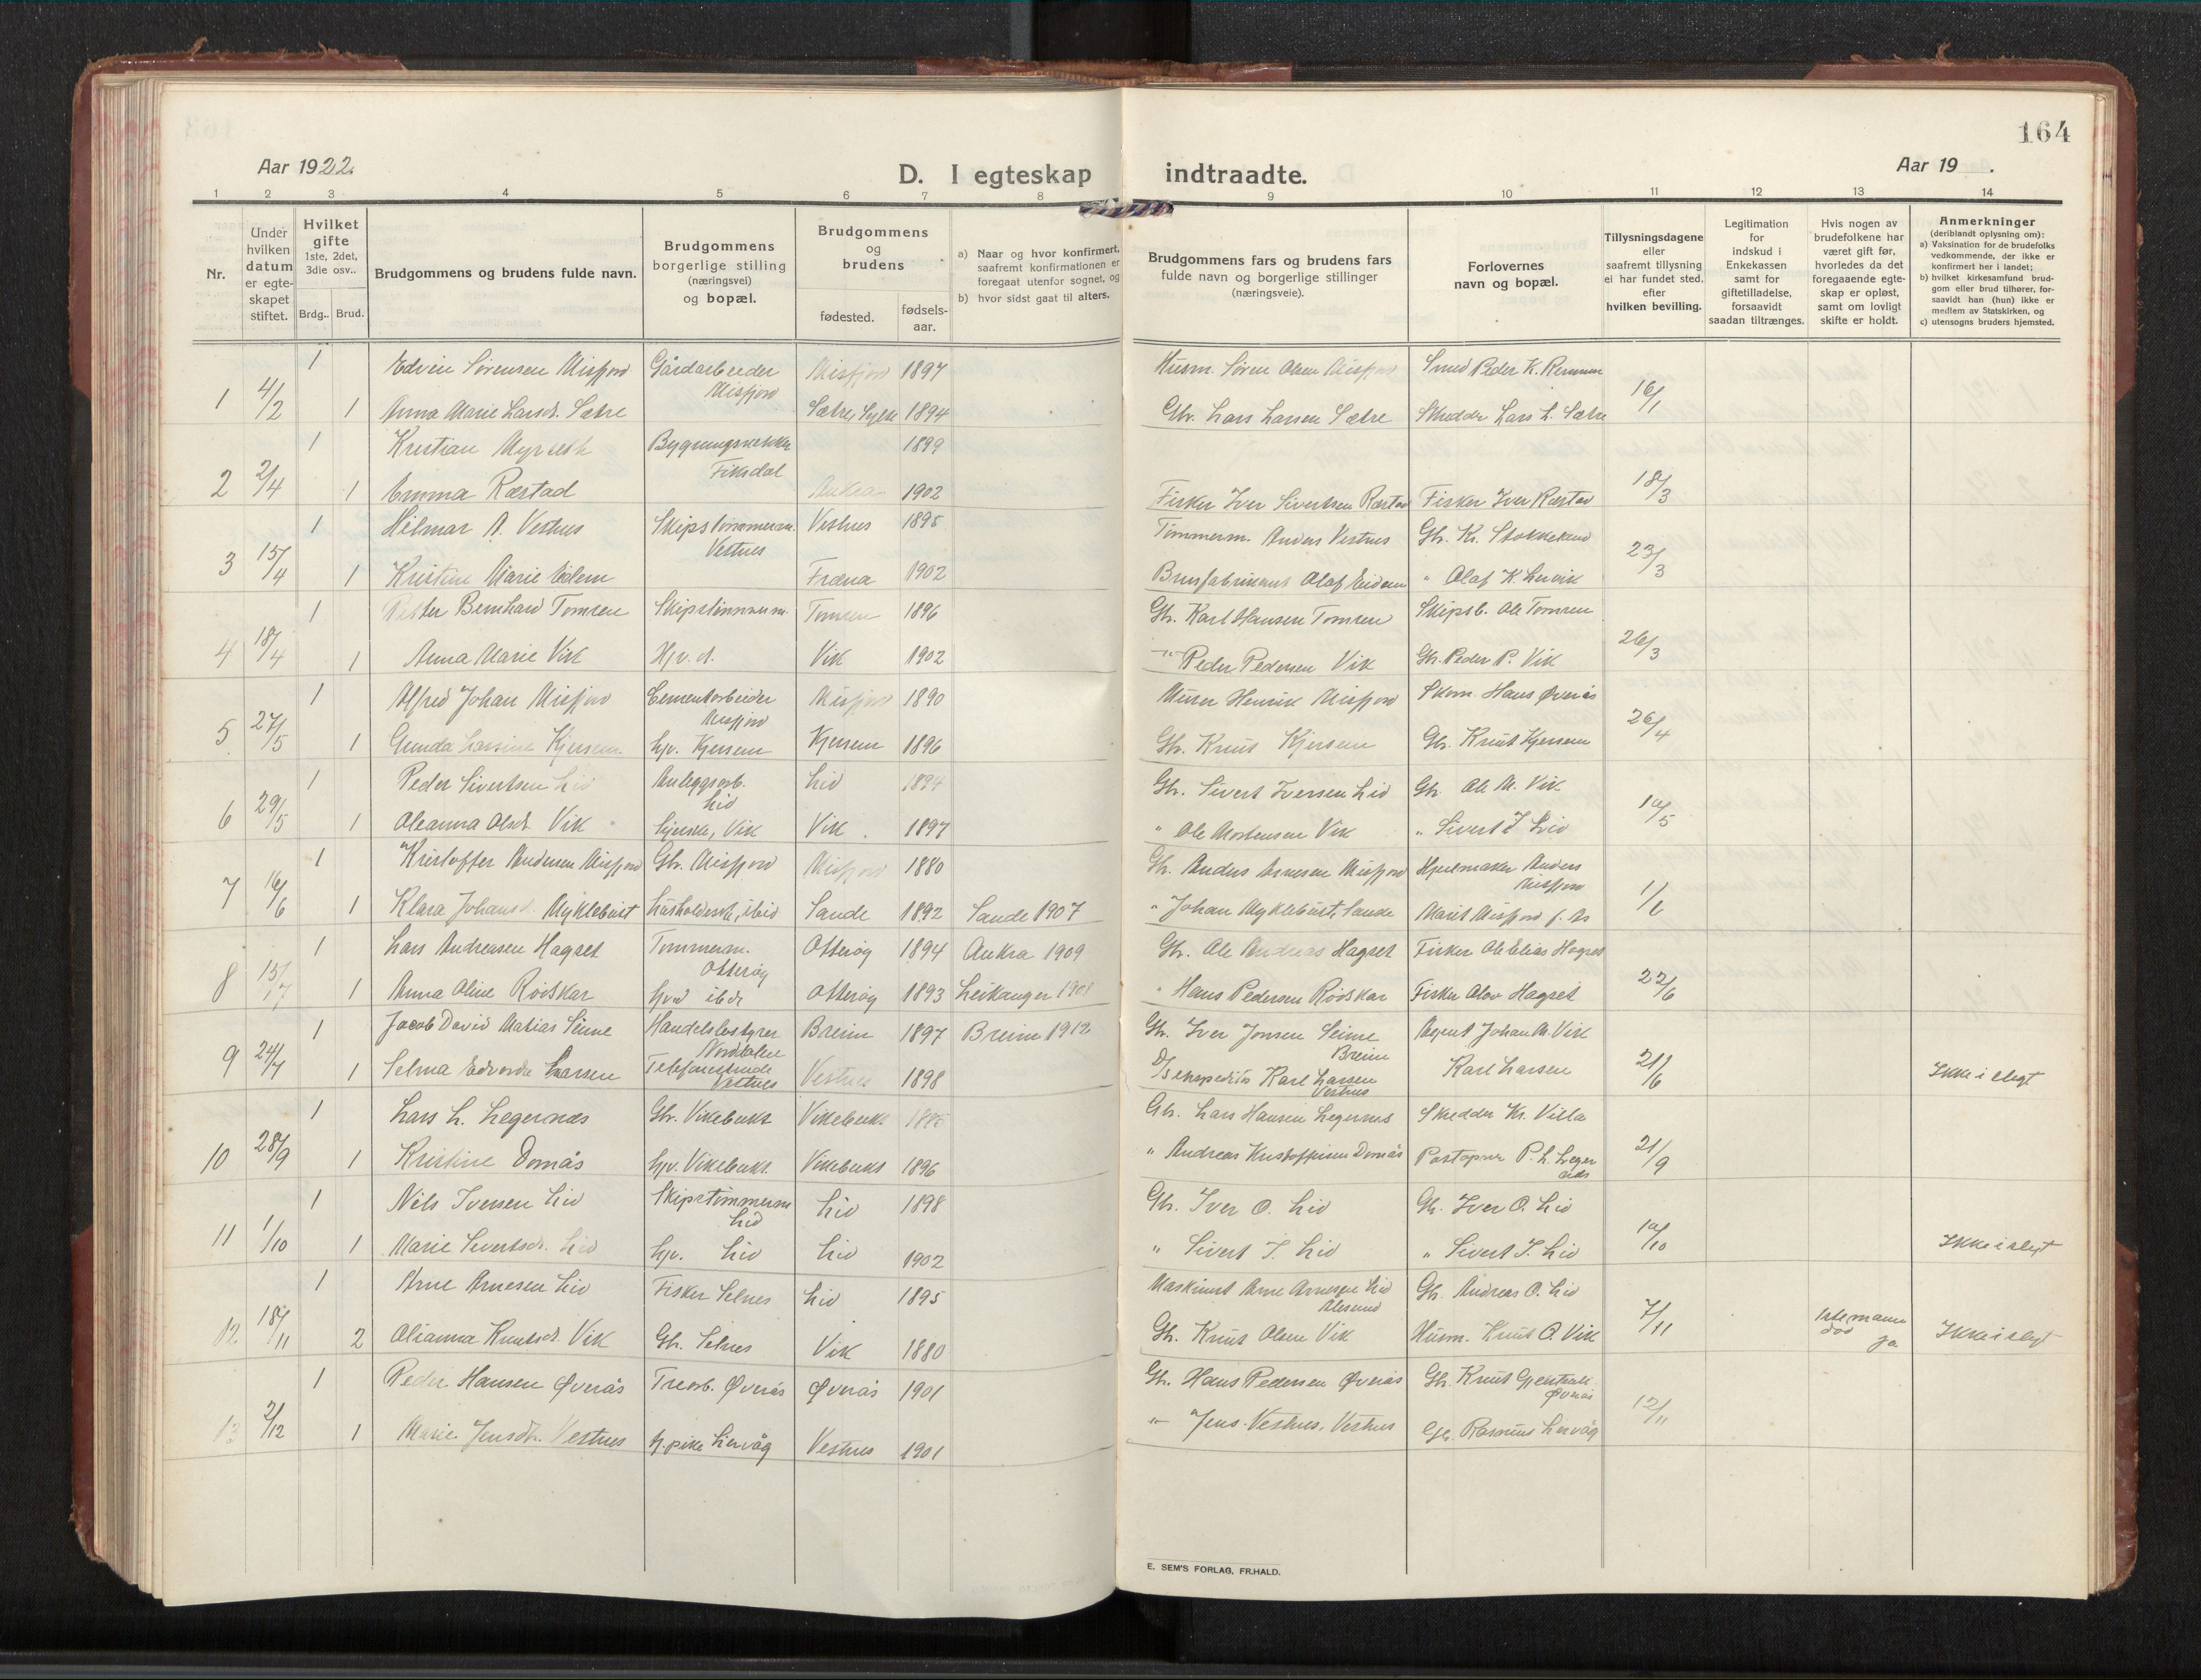 164
Aar 1922.
D. I egteskap indtraadte.
Aar 19 .
1 2 3 4 5 6 7 8 9 10 11 12 13 14
Nr.
Under hvilken datum er egteskapet stiftet.
Hvilket gifte 1ste, 2det, 3die osv..
Brdg.. Brud.
Brudgommens og brudens fulde navn.
Brudgommens borgerlige stilling (næringsvei) og bopæl.
Brudgommens og brudens
fødested.
fødselsaar.
a) Naar og hvor konfirmert, saafremt konfirmationen er foregaat utenfor sognet, og
b) hvor sidst gaat til alters.
Brudgommens fars og brudens fars fulde navn og borgerlige stillinger (næringsveie).
Forlovernes navn og bopæl.
Tillysningsdagene eller saafremt tillysning ei har fundet sted, efter hvilken bevilling.
Legitimation for indskud i Enkekassen samt for giftetilladelse, forsaavidt saadan tiltrænges.
Hvis nogen av brudefolkene har været gift før, hvorledes da det foregaaende egteskap er opløst, samt om lovligt skifte er holdt.
Anmerkninger (deriblandt oplysning om):
a) Vaksination for de brudefolks vedkommende, der ikke er konfirmert her i landet;
b) hvilket kirkesamfund brudgom eller brud tilhører, forsaavidt han (hun) ikke er medlem av Statskirken, og
c) utensogns bruders hjemsted.
1 Edvin Sørensen Misfjord Gårdarbeider Misfjord 1897 Husm. Søren Olsen Misfjord Smed Peder K.
1 4/2 1 Anna Marie Larsd. Sætre Sætre, 1894 Gbr. Lars Larsen Sætre Skredder Lars L. Sætre 16/1
1 Kristian Myrseth Fiksdal 1899
2 2/4 1 Emma Røstad Aukra 1902 Fisker Iver Sivertsen Røstad Fisker Iver Røstad 18/3
1 Hilmar A. Vestnes Skipstømmerm. Vestnes Vestnes 1895 Tømmerm. Anders Vestnes Gbr. Kr. Stokkeland
3 15/4 1 Kristine Marie Eidem Fræna 1902 Brusfabrikant Olaf Eidem " Olaf K. Lervik 23/3
1 Petter Bernhard Tomren Skipstømmerm. Tomren 1896 Gbr. Karl Hansen Tomren Skipsb. Ole Tomren
4 18/4 1 Anna Marie Vik Hjv. d. Vik 1902 " Peder Pedersen Vik Gbr. Peder P. Vik 26/3
1 Alfred Johan Misfjord Cementarbeider Misfjord Misfjord 1890 Murer Henrik Misfjord Skom. Hans Øverås
5 27/5 1 Gunda Lassine Kjersem hjv. Kjersem Kjersem 1896 Gbr. Knut Kjersem Gbr. Knut Kjersem 26/4
1 Peder Sivertsen Lid Anleggsarb. Lid Lid 1894 Gbr. Sivert Iversen Lid Gbr. Ole M. Vik
6 29/5 1 Oleanna Olsd. Vik Vik Vik 1897 " Ole Mortensen Vik " Sivert I Lid 10/5
1 Kristoffer Andersen Misfjord Gbr. Misfjord Misfjord 1880 Gbr. Anders Arnesen Misfjord Hjulmaker Anders Misfjord
7 16/6 1 Klara Johansd. Myklebust husholderske, ibid Sande 1892 Sande 1907 " Johan Myklebust, Sande Marit Misfjord f. Ås 1/6
1 Lars Andreasen Hagset Tømmerm. Otterøy Otterøy 1894 Aukra 1909 Gbr. Ole Andreas Hagset Fisker Ole Elias Hagset
8 15/7 1 Anna Oline Rødskar hjv. ibd. Otterøy 1893 Leikanger 1908 " Hans Pedersen Rødskar Fisker Olov Hagset 22/6
1 Jacob David Matias Seime Handelsbestyrer Nordalen Breim 1897 Breim 1912 Gbr. Iver Jonsen Seime Breim Agent Johan M. Vik
9 24/7 1 Selma Edvarda Larsen Vestnes Vestnes 1898 D/S ekspeditør Karl Larsen Vestnes Karl Larsen 21/6 Ikke i slegt
1 Lars L. Legernæs Gbr. Vikebukt Vikebukt 1885 Gbr. Lars Hansen Legernes Skredder Kr. Villa
10 28/9 1 Kristine Domås hjv. Vikebukt Vikebukt 1896 " Andreas Kristoffersen Domås Postopner P. L. Legernes 21/9
1 Nils Iversen Lid Skipstømmerm Lid Lid 1898 Gbr. Iver O. Lid Gbr. Iver O. Lid
11 1/10 1 Marie Sivertsd. Lid hjv. Lid Lid 1902 " Sivert I. Lid " Sivert I. Lid 10/10 Ikke i slegt
1 Arne Arnesen Lid Fisker Selnes Lid 1895 Maskinist Arne Arnesen Lid Ålesund Gbr. Andreas O. Lid
12 18/11 2 Olianna Knutsd. Vik Gbr. Selnes Vik 1880 Gbr. Knut Olsen Vik Husm. Knut O. Vik 7/11 1ste mann død ja Ikke i slegt
1 Peder Hansen Øverås Trearb. Øverås Øverås 1901 Gbr. Hans Pedersen Øverås Gbr. Knut Gjerstad Øverås
13 2/12 1 Marie Jensdtr. Vestnes h. pike Lervåg Vestnes 1901 " Jens Vestnes, Vestnes Gbr. Rasmus Lervåg 12/11
E. SEM'S FORLAG, FR.HALD.